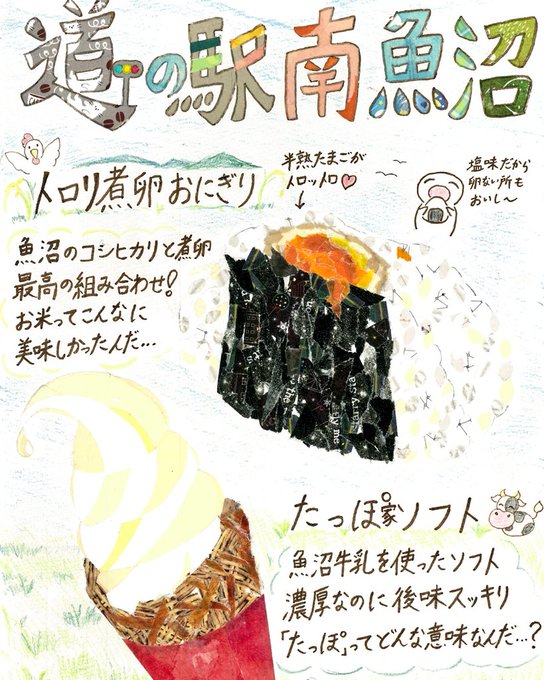 道の駅南魚沼
トロリ煮卵おにぎり
半熟たまごが
トロットロ♡
↓
塩味だから
卵ない所も
おいし〜
魚沼のコシヒカリと煮卵
最高の組み合わせ!
お米ってこんなに
美味しかったんだ…
たっぽ家ソフト
魚沼牛乳を使ったソフト
濃厚なのに後味スッキリ
「たっぽ」ってどんな意味なんだ…?